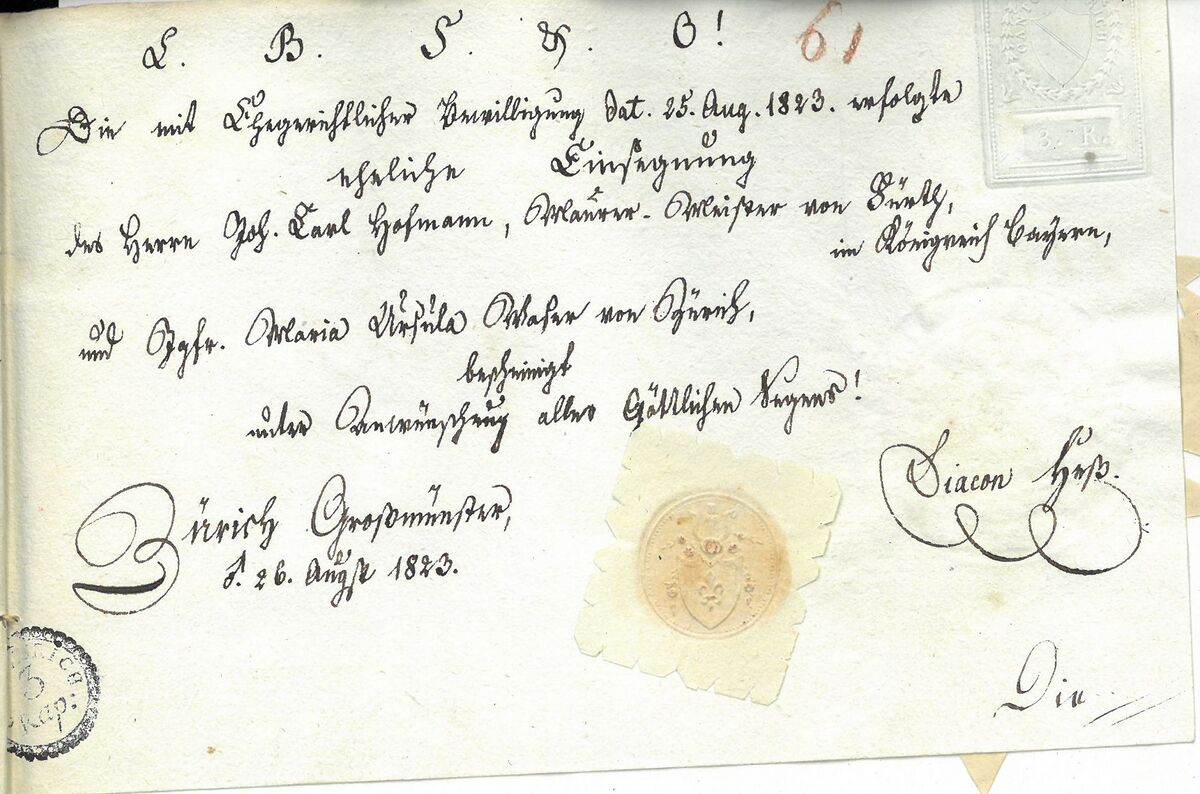 L. B. S. & O! 61
Die mit Ehegerichtlicher Bewilligung dat. 25. Aug. 1823. erfolgte
eheliche Einsegnung
des Herrn Joh. Carl Hofmann, Maurer-Meister von Fürth,
im Königreich Bayern,
und Jgfr. Maria Ursula Waser von Zürich,
bescheinigt
unter Anwünschung alles Göttlichen Segens!
Diacon Heß.
Zürich Großmünster,
d. 26. Augst 1823.
Die
CANTON
3. R.
3
Kap: